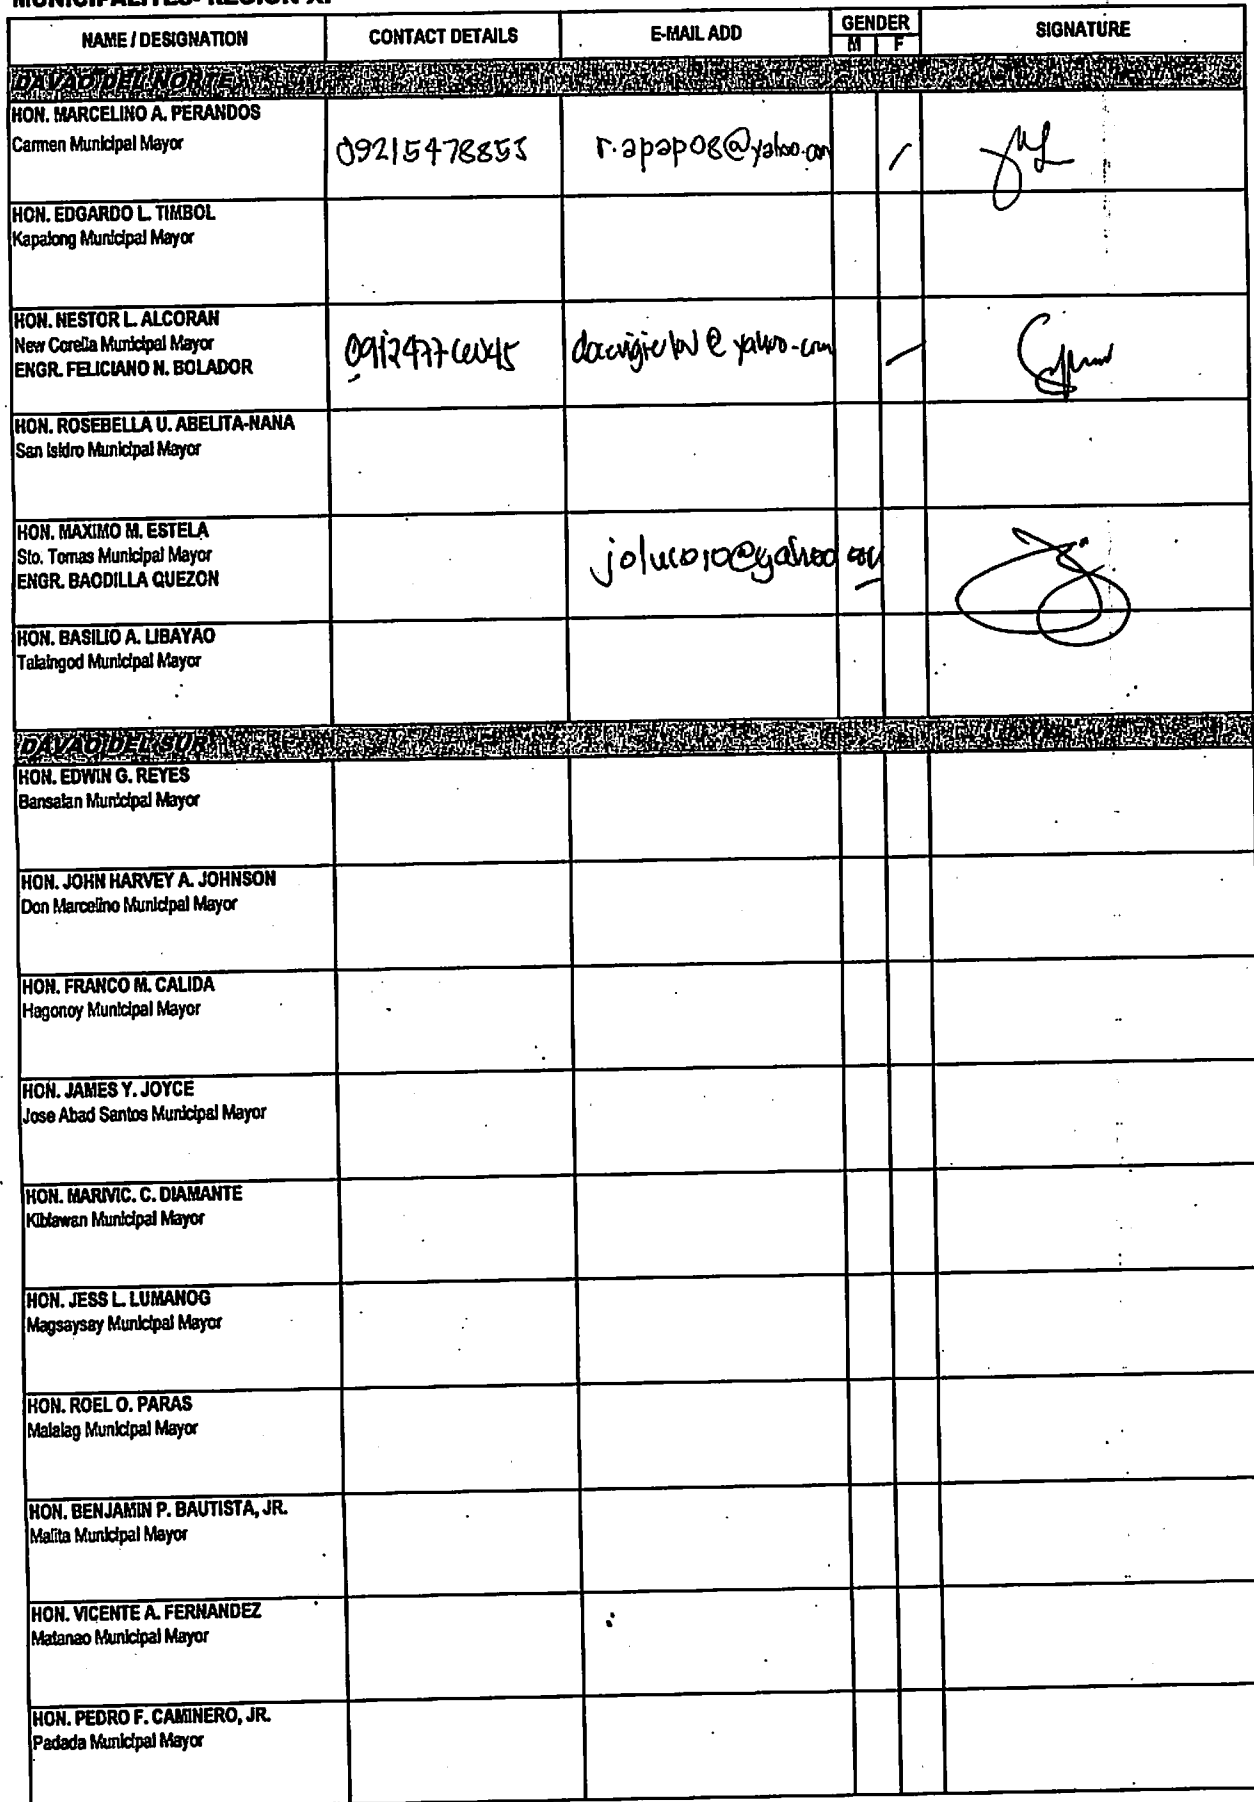 MUNICIPALITES- REGION XI
NAME / DESIGNATION CONTACT DETAILS E-MAIL ADD GENDER SIGNATURE
M F
DAVAO DEL NORTE
HON. MARCELINO A. PERANDOS
Carmen Municipal Mayor
09215478853 r.apap08@yahoo.com
HON. EDGARDO L. TIMBOL
Kapalong Municipal Mayor
HON. NESTOR L. ALCORAN
New Corella Municipal Mayor
ENGR. FELICIANO N. BOLADOR
HON. ROSEBELLA U. ABELITA-NANA
San Isidro Municipal Mayor
HON. MAXIMO M. ESTELA
Sto. Tomas Municipal Mayor
ENGR. BAODILLA QUEZON
HON. BASILIO A. LIBAYAO
Talaingod Municipal Mayor
DAVAO DEL SUR
HON. EDWIN G. REYES
Bansalan Municipal Mayor
HON. JOHN HARVEY A. JOHNSON
Don Marcelino Municipal Mayor
HON. FRANCO M. CALIDA
Hagonoy Municipal Mayor
HON. JAMES Y. JOYCE
Jose Abad Santos Municipal Mayor
HON. MARIVIC. C. DIAMANTE
Kiblawan Municipal Mayor
HON. JESS L. LUMANOG
Magsaysay Municipal Mayor
HON. ROEL O. PARAS
Malalag Municipal Mayor
HON. BENJAMIN P. BAUTISTA, JR.
Malita Municipal Mayor
HON. VICENTE A. FERNANDEZ
Matanao Municipal Mayor
HON. PEDRO F. CAMINERO, JR.
Padada Municipal Mayor